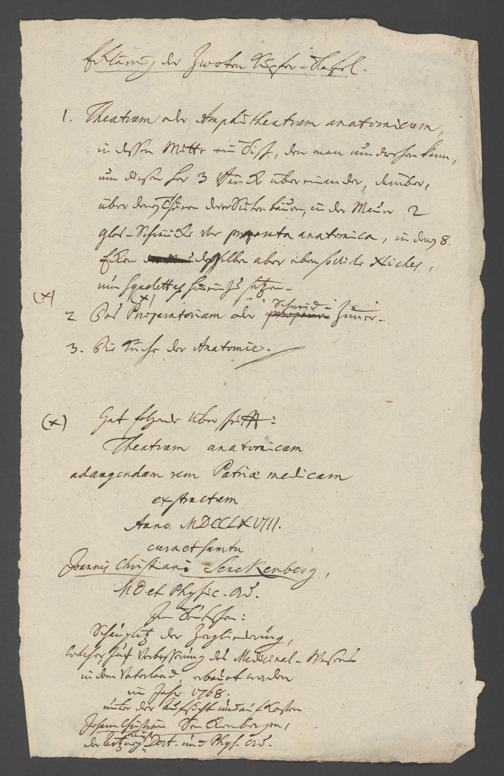 Erklärung der Zwoten Kupfer-Tafel.
1. Theatrum oder Amphitheatrum anatomicum,
in dessen Mitte ein Tisch, den man umdrehen kann,
um diesen her 3 Bäncke über einander, darüber,
über denen Thüren in der Mauer 2
glas-Schräncke vor praeparata anatomica, in denen 8.
Ecken desselben aber eben solche Niches,
um Squelettes hinein zu setzen.
(x)
2 Das Praeparatorium oder Schneid-Zimer.
3. Die Küche der Anatomie.
(x) Hat folgende Überschrifft:
Theatrum anatomicum
adaugendam rem Patriæ medicam
exstructum
Anno. MDCCLXVIII.
cura et sumtu
Joannis Christiani Senckenberg,
MD et Physic. Ord.
Zu Teutsch:
Schauplatz der Zergliederung,
welcher zur Verbesserung des Medicinal-Wesens
in dem Vaterland, erbauet worden
im Jahr 1768.
unter der Aufsicht und auf Kosten
Johann Christian Senckenbergs,
der Doct. und Phys. Ord.